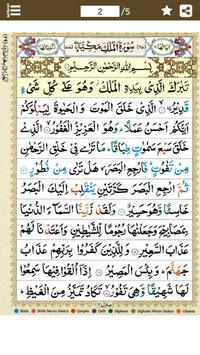 2 /5
سُوْرَةُ الْمُلْكِ مَكِّيَّةٌ
بِسْمِ اللّٰهِ الرَّحْمٰنِ الرَّحِيْمِ
تَبٰرَكَ الَّذِيْ بِيَدِهِ الْمُلْكُ وَهُوَ عَلٰى كُلِّ شَيْءٍ
قَدِيْرُ ۨ الَّذِيْ خَلَقَ الْمَوْتَ وَ الْحَيٰوةَ لِيَبْلُوَكُمْ
اَيُّكُمْ اَحْسَنُ عَمَلًا وَهُوَ الْعَزِيْزُ الْغَفُوْرُ الَّذِيْ
خَلَقَ سَبْعَ سَمٰوٰتٍ طِبَاقًا مَا تَرٰى فِيْ خَلْقِ الرَّحْمٰنِ
مِنْ تَفٰوُتٍ فَارْجِعِ الْبَصَرَ هَلْ تَرٰى مِنْ فُطُوْرٍ
ثُمَّ ارْجِعِ الْبَصَرَ كَرَّتَيْنِ يَنْقَلِبْ اِلَيْكَ الْبَصَرُ
خَاسِئًا وَّهُوَ حَسِيْرٌ وَلَقَدْ زَيَّنَّا السَّمَآءَ الدُّنْيَا
بِمَصَابِيْحَ وَجَعَلْنٰهَا رُجُوْمًا لِّلشَّيٰطِيْنِ وَاَعْتَدْنَا لَهُمْ
عَذَابَ السَّعِيْرِ وَ لِلَّذِيْنَ كَفَرُوْا بِرَبِّهِمْ عَذَابُ
جَهَنَّمَ وَبِئْسَ الْمَصِيْرُ اِذَآ اُلْقُوْا فِيْهَا سَمِعُوْا
لَهَا شَهِيْقًا وَّهِيَ تَفُوْرُ تَكَادُ تَمَيَّزُ مِنَ الْغَيْظِ
Ikhfa
Ikhfa Meem Saakin
Qalqala
Qalb
Idghaam
Idghaam Meem Saakin
Ghunna